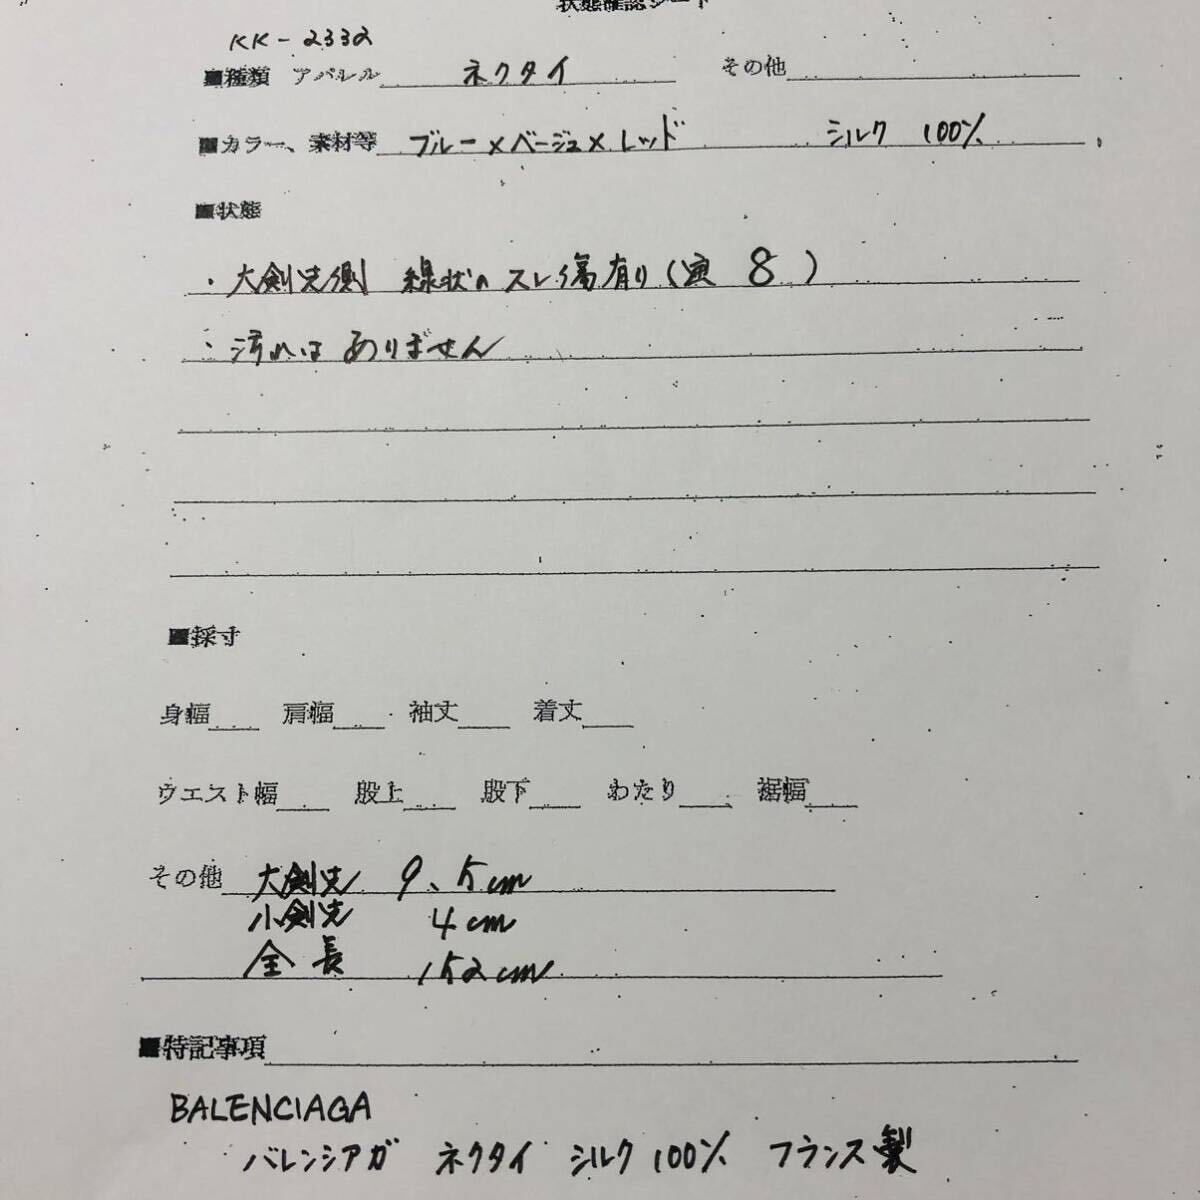 状態確認シート
KK-2332
■種類 アパレル ネクタイ その他
■カラー、素材等 ブルー×ベージュ×レッド シルク 100%
■状態
・大剣先側 線状のスレ傷有り(写 8)
・汚れは ありません
■採寸
身幅 肩幅 袖丈 着丈
ウエスト幅 股上 股下 わたり 裾幅
その他 大剣先 9.5cm
小剣先 4cm
全長 152cm
■特記事項
BALENCIAGA
バレンシアガ ネクタイ シルク100% フランス製